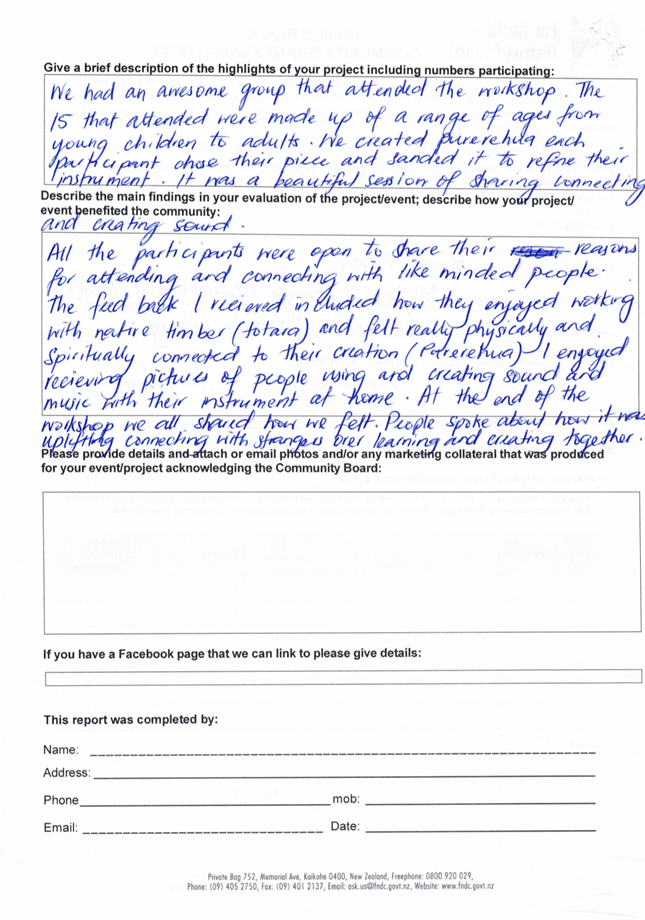 Give a brief description of the highlights of your project including numbers participating:
We had an awesome group that attended the workshop. The
15 that attended were made up of a range of ages from
young children to adults. We created purerehua each
participant chose their piece and sanded it to refine their
instrument. It was a beautiful session of sharing connecting
Describe the main findings in your evaluation of the project/event; describe how your project/
event benefited the community:
and creating sound.
All the participants were open to share their reasons
for attending and connecting with like minded people.
The feed back I recieved included how they enjoyed working
with native timber (totara) and felt really physically and
Spiritually connected to their creation (Purerehua) I enjoyed
recieving pictures of people using and creating sound and
music with their instrument at home. At the end of the
workshop we all shared how we felt. People spoke about how it was
uplifting connecting with strangers over learning and creating together.
Please provide details and attach or email photos and/or any marketing collateral that was produced
for your event/project acknowledging the Community Board:
If you have a Facebook page that we can link to please give details:
This report was completed by:
Name:
Address:
Phone mob:
Email: Date:
Private Bag 752, Memorial Ave, Kaikohe 0400, New Zealand, Freephone: 0800 920 029,
Phone: (09) 405 2750, Fax: (09) 401 2137, Email: ask.us@fndc.govt.nz, Website: www.fndc.govt.nz